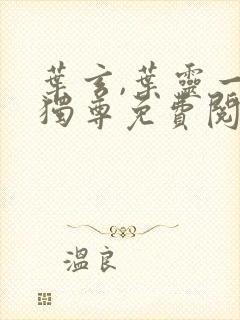 葉玄,葉靈一
獨尊免費閱
溫良